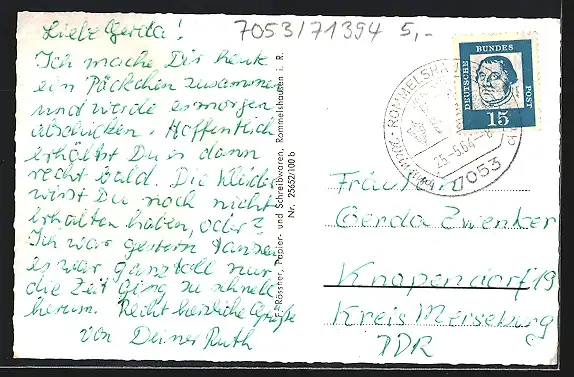 Liebe Gerda!
7053/71394 5,-
Ich mache Dir heute
ein Päckchen zusammen
und werde es morgen
abschicken. Hoffentlich
erhältst Du es dann
recht bald. Die Kleider
wirst Du noch nicht
erhalten haben, oder?
Ich war gestern tanzen
es war ganz toll nur
die Zeit ging zu schnell
herum. Recht herzliche Grüße
von Deiner Ruth
F. Rössner, Papier- und Schreibwaren, Rommelshausen i. R.
Nr. 25652/100 b
ROMMELSHAUSEN
23.-5.64.-8
7053
DEUTSCHE
BUNDES
POST
15
Fräulein
Gerda Zwenker
Knapendorf 19
Kreis Merseburg
DDR